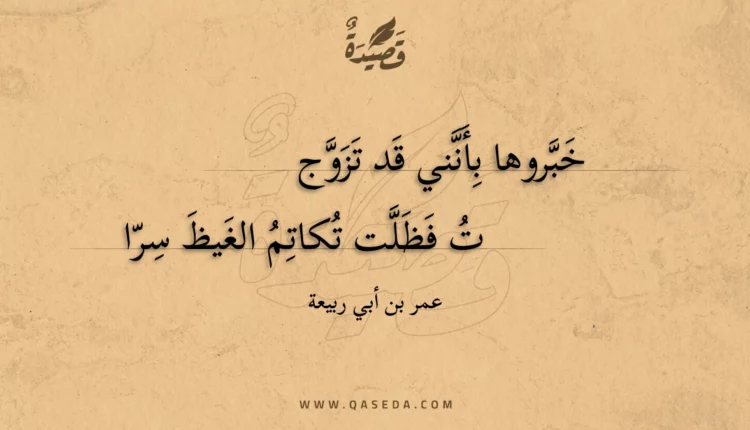 قَصِيدَةٌ
خَبَّروها بِأَنَّني قَد تَزَوَّج
تُ فَظَلَّت تُكاتِمُ الغَيظَ سِرّا
عمر بن أبي ربيعة
WWW.QASEDA.COM